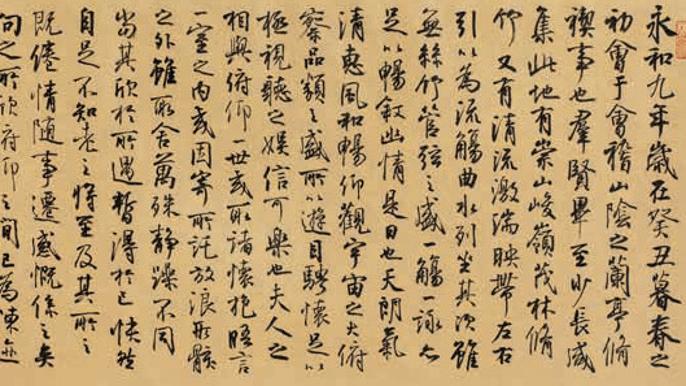 永和九年歲在癸丑暮春之
初會于會稽山陰之蘭亭脩
禊事也羣賢畢至少長咸
集此地有崇山峻嶺茂林脩
竹又有清流激湍映帶左右
引以為流觴曲水列坐其次雖
無絲竹管弦之盛一觴一詠亦
足以暢敘幽情是日也天朗氣
清惠風和暢仰觀宇宙之大俯
察品類之盛所以遊目騁懷足以
極視聽之娛信可樂也夫人之
相與俯仰一世或取諸懷抱晤言
一室之內或因寄所託放浪形骸
之外雖取舍萬殊靜躁不同
當其欣於所遇暫得於己快然
自足不知老之將至及其所之
既倦情隨事遷感慨係之矣
向之所欣俯仰之間已為陳迹